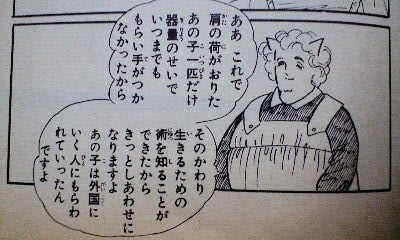 ああ これで
肩の荷がおりた
あの子一匹だけ
器量のせいで
いつまでも
もらい手がつか
なかったから
そのかわり
生きるための
術を知ることが
できたから
きっとしあわせに
なりますよ
あの子は外国に
いく人にもらわ
れていったん
ですよ